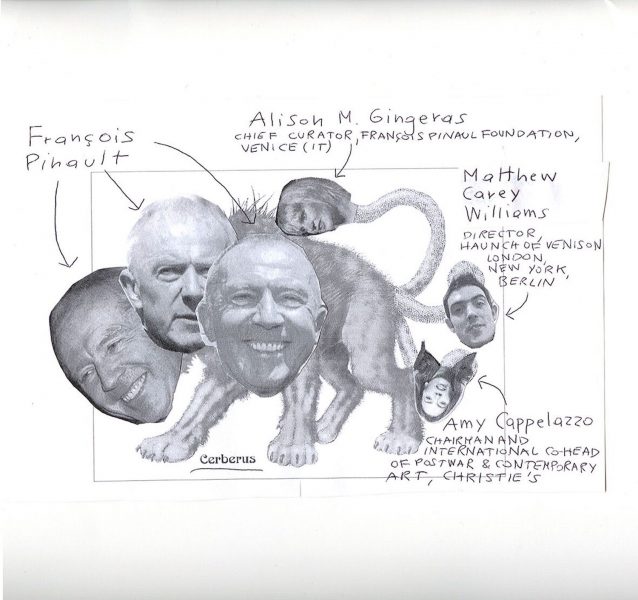 François
Pinault
Alison M. Gingeras
CHIEF CURATOR, FRANÇOIS PINAUL FOUNDATION,
VENICE (IT)
Matthew
Carey
Williams
DIRECTOR,
HAUNCH OF VENISON
LONDON,
NEW YORK,
BERLIN
Amy Cappelazzo
CHAIRMAN AND
INTERNATIONAL CO-HEAD
OF POSTWAR & CONTEMPORARY
ART, CHRISTIE'S
Cerberus